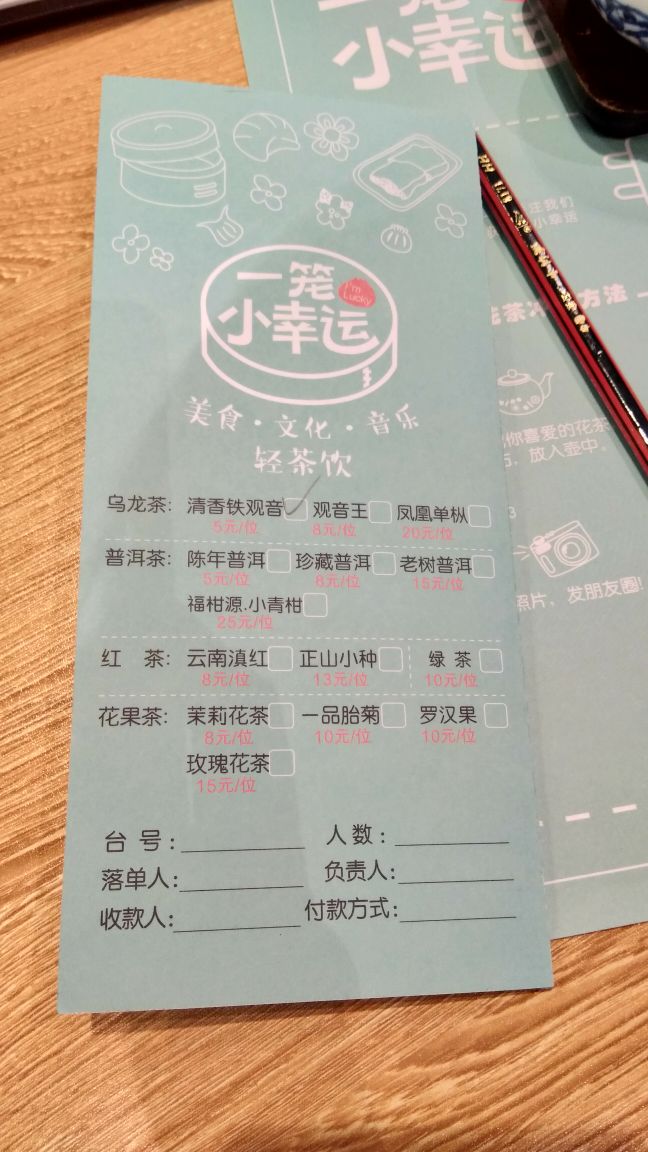 一笼
小幸运
一笼
I'm Lucky
小幸运
美食·文化·音乐
轻茶饮
乌龙茶: 清香铁观音 观音王 凤凰单枞
5元/位 8元/位 20元/位
普洱茶: 陈年普洱 珍藏普洱 老树普洱
5元/位 8元/位 15元/位
福柑源.小青柑
25元/位
红 茶: 云南滇红 正山小种 绿 茶
8元/位 13元/位 10元/位
花果茶: 茉莉花茶 一品胎菊 罗汉果
8元/位 10元/位 10元/位
玫瑰花茶
15元/位
台 号: 人数:
落单人: 负责人:
收款人: 付款方式:
注我们
小幸运
花茶冲 方法
你喜爱的花茶
放入壶中。
3
照片，发朋友圈!